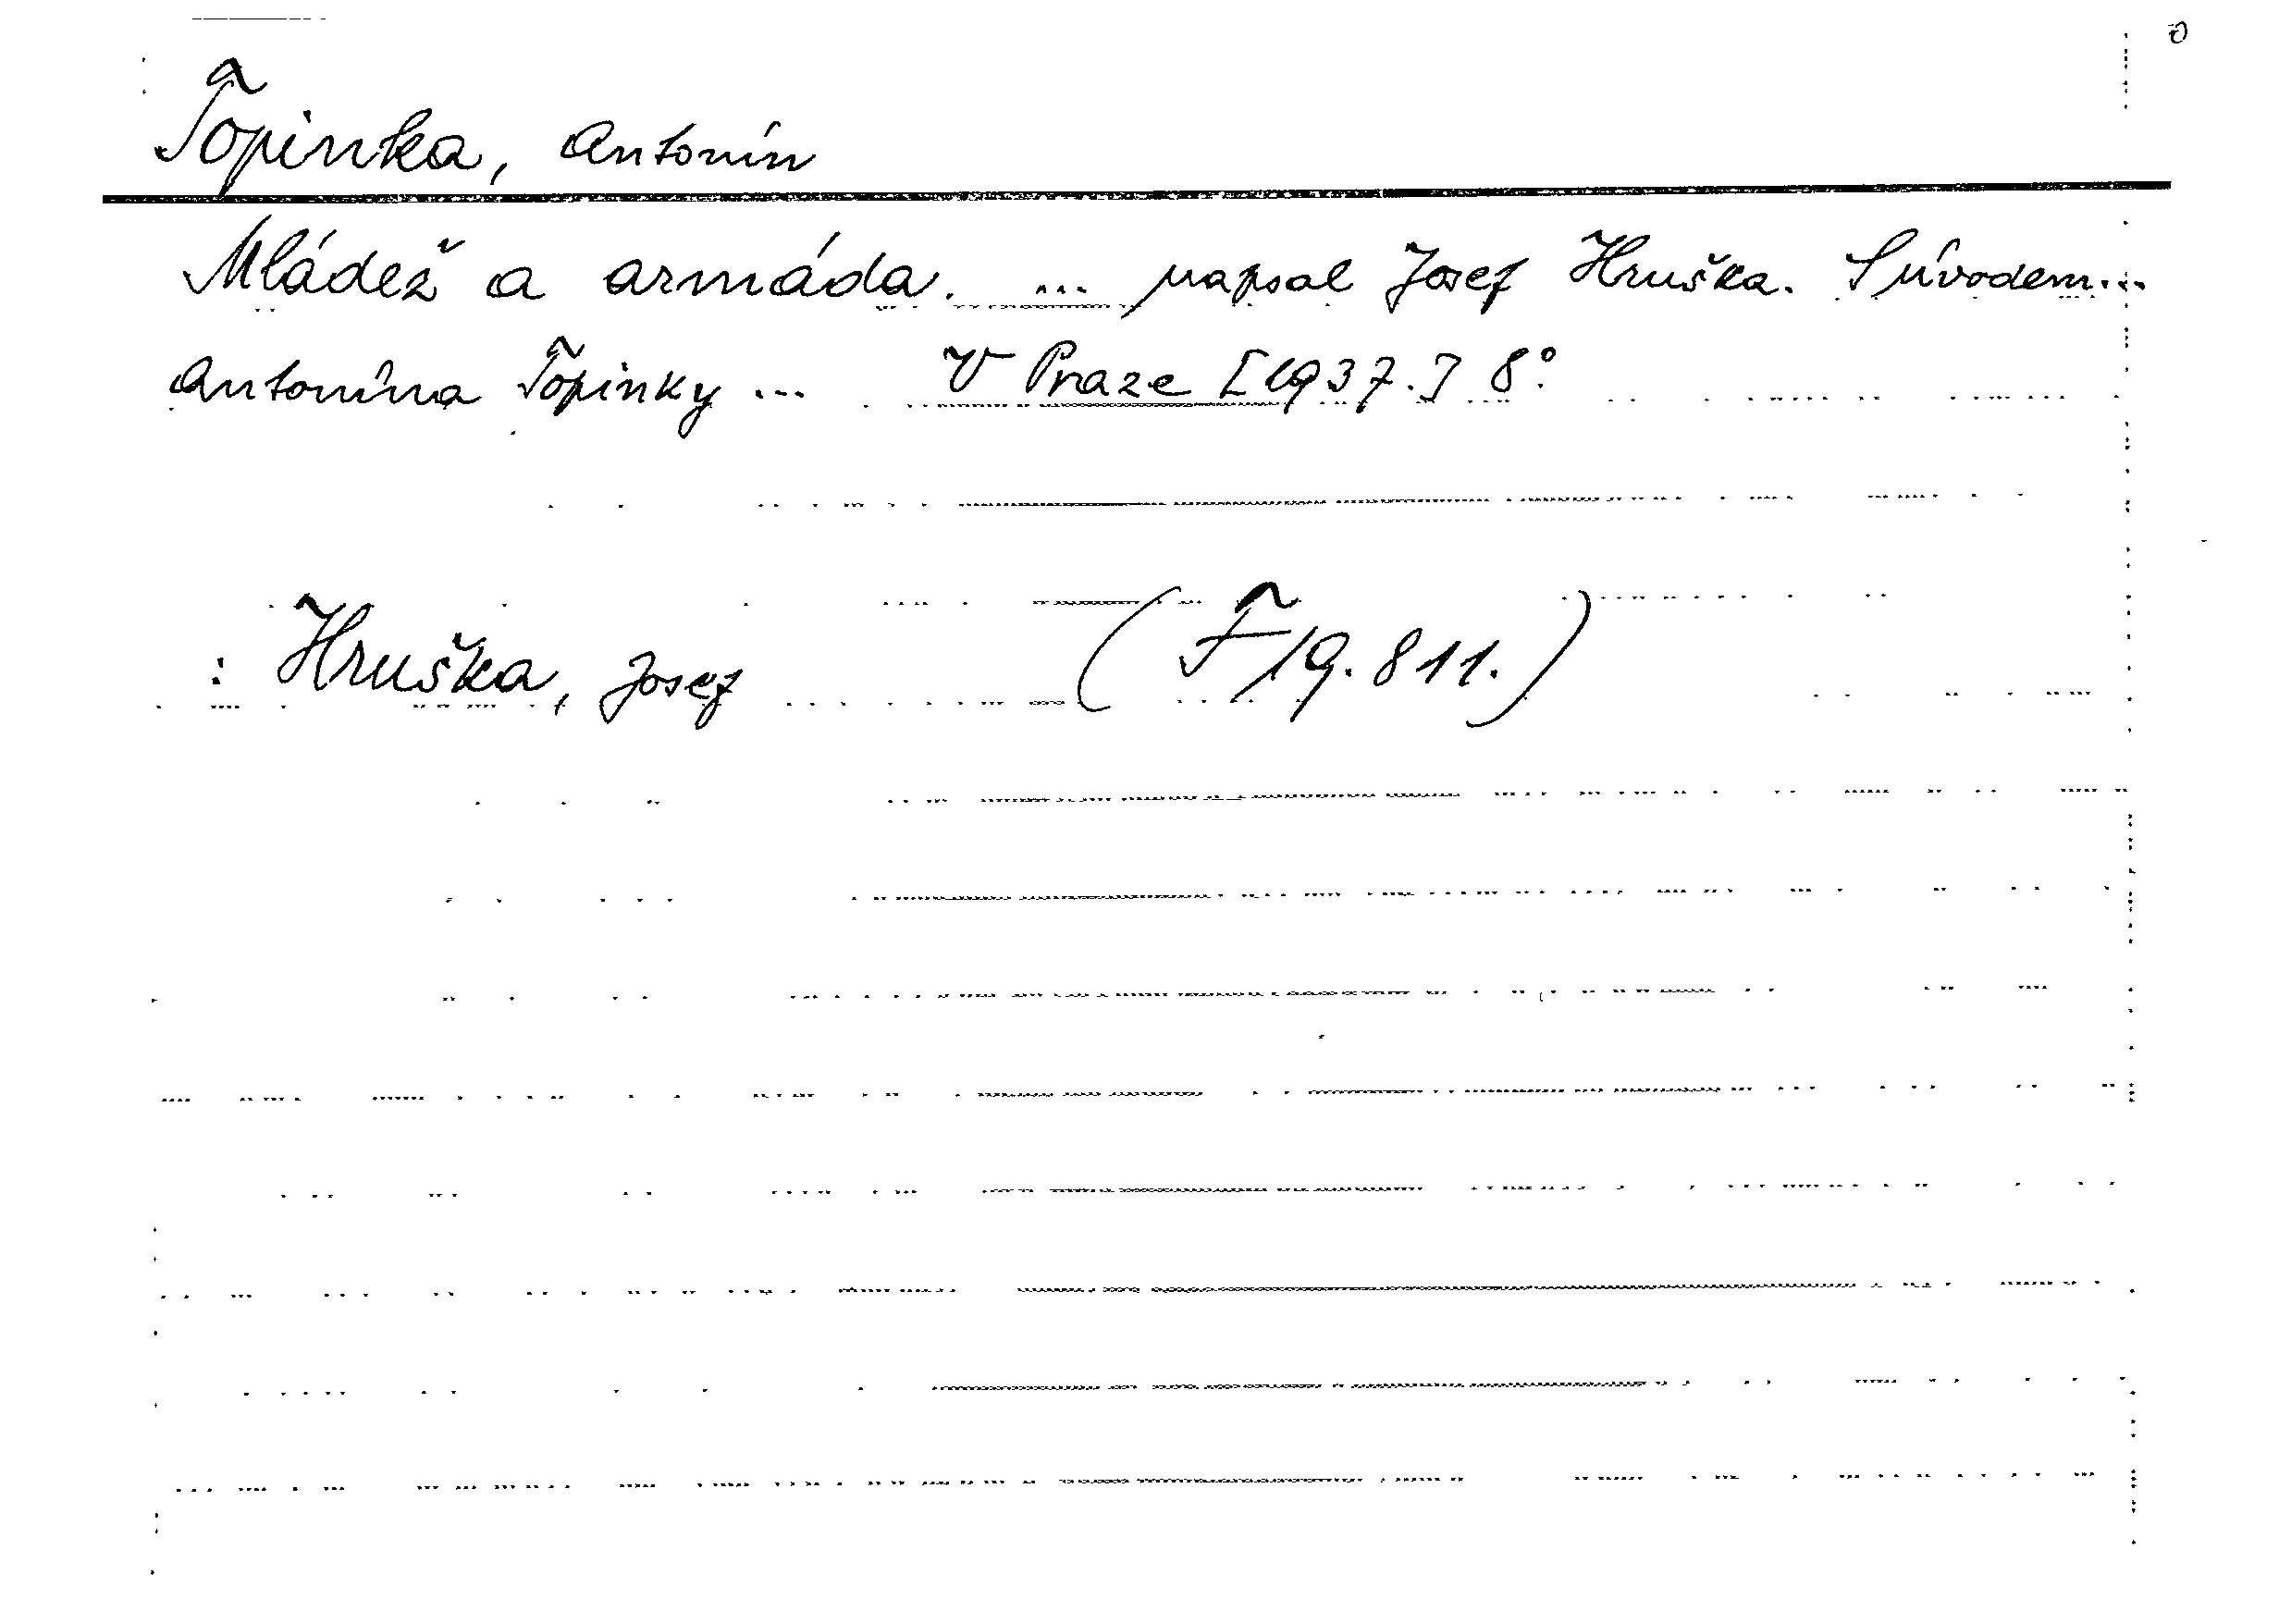 Topinka, Antonín
Mládež a armáda. ... napsal Josef Hruška. S úvodem...
Antonína Topinky ... V Praze [1937.] 8°.
: Hruška, Josef (F 19.811.)